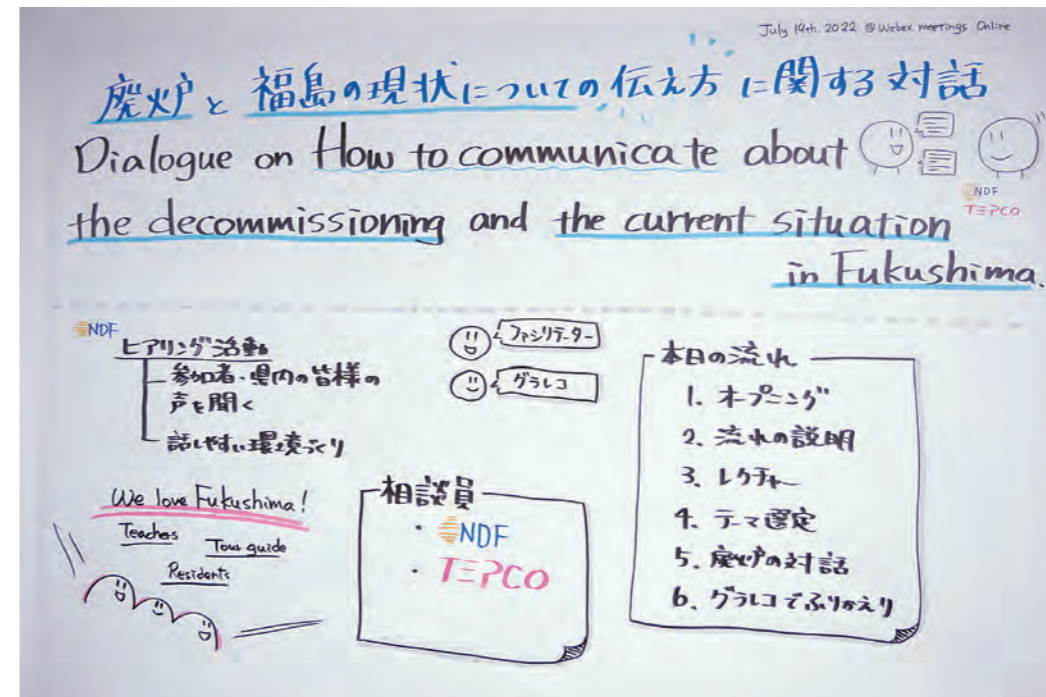 July 19th. 2022 @ Webex meetings Online
廃炉と福島の現状についての伝え方に関する対話
Dialogue on How to communicate about
the decommissioning and the current situation
in Fukushima.
NDF
TEPCO
NDF
ヒアリング活動
参加者・県内の皆様の
声を聞く
話しやすい環境づくり
ファシリテーター
グラレコ
We love Fukushima!
Teachers
Tour guide
Residents
相談員
・NDF
・TEPCO
本日の流れ
1. オープニング
2. 流れの説明
3. レクチャー
4. テーマ選定
5. 廃炉の対話
6. グラレコでふりかえり